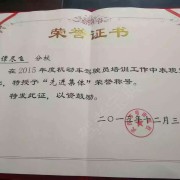 荣誉证书
分校
在2015年度机动车驾驶员培训工作中表现
授予“先进集体”荣誉称号。
特发此证，以资鼓励。
二〇一五年十二月三